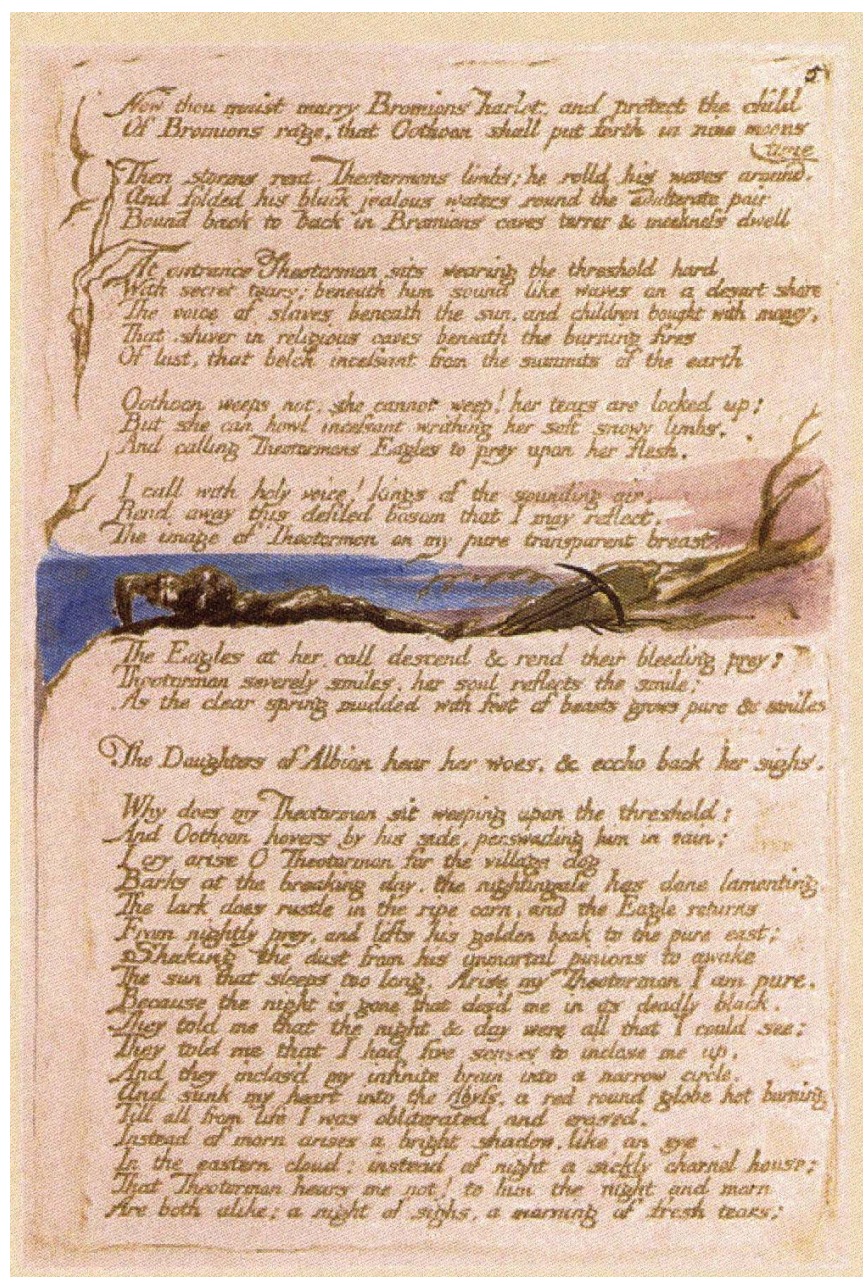 5
Now thou maist marry Bromions harlot, and protect the child
Of Bromions rage, that Oothoon shall put forth in nine moons
time
Then storms rent Theotormons limbs; he rolld his waves around.
And folded his black jealous waters round the adulterate pair
Bound back to back in Bromions caves terror & meekness dwell
At entrance Theotormon sits wearing the threshold hard
With secret tears; beneath him sound like waves on a desart shore
The voice of slaves beneath the sun, and children bought with money,
That shiver in religious caves beneath the burning fires
Of lust, that belch incessant from the summits of the earth
Oothoon weeps not, she cannot weep! her tears are locked up;
But she can howl incessant writhing her soft snowy limbs,
And calling Theotormons Eagles to prey upon her flesh.
I call with holy voice! kings of the sounding air,
Rend away this defiled bosom that I may reflect,
The image of Theotormon on my pure transparent breast.
The Eagles at her call descend & rend their bleeding prey;
Theotormon severely smiles, her soul reflects the smile;
As the clear spring mudded with feet of beasts grows pure & smiles
The Daughters of Albion hear her woes, & eccho back her sighs.
Why does my Theotormon sit weeping upon the threshold;
And Oothoon hovers by his side, perswading him in vain;
I cry arise O Theotormon for the village dog
Barks at the breaking day, the nightingale has done lamenting,
The lark does rustle in the ripe corn, and the Eagle returns
From nightly prey, and lifts his golden beak to the pure east;
Shaking the dust from his immortal pinions to awake
The sun that sleeps too long. Arise my Theotormon I am pure.
Because the night is gone that clos'd me in its deadly black.
They told me that the night & day were all that I could see;
They told me that I had five senses to inclose me up,
And they inclos'd my infinite brain into a narrow circle.
And sunk my heart into the Abyss, a red round globe hot burning
Till all from life I was obliterated and erased.
Instead of morn arises a bright shadow, like an eye
In the eastern cloud: instead of night a sickly charnel house;
That Theotormon hears me not! to him the night and morn
Are both alike; a night of sighs, a morning of fresh tears;